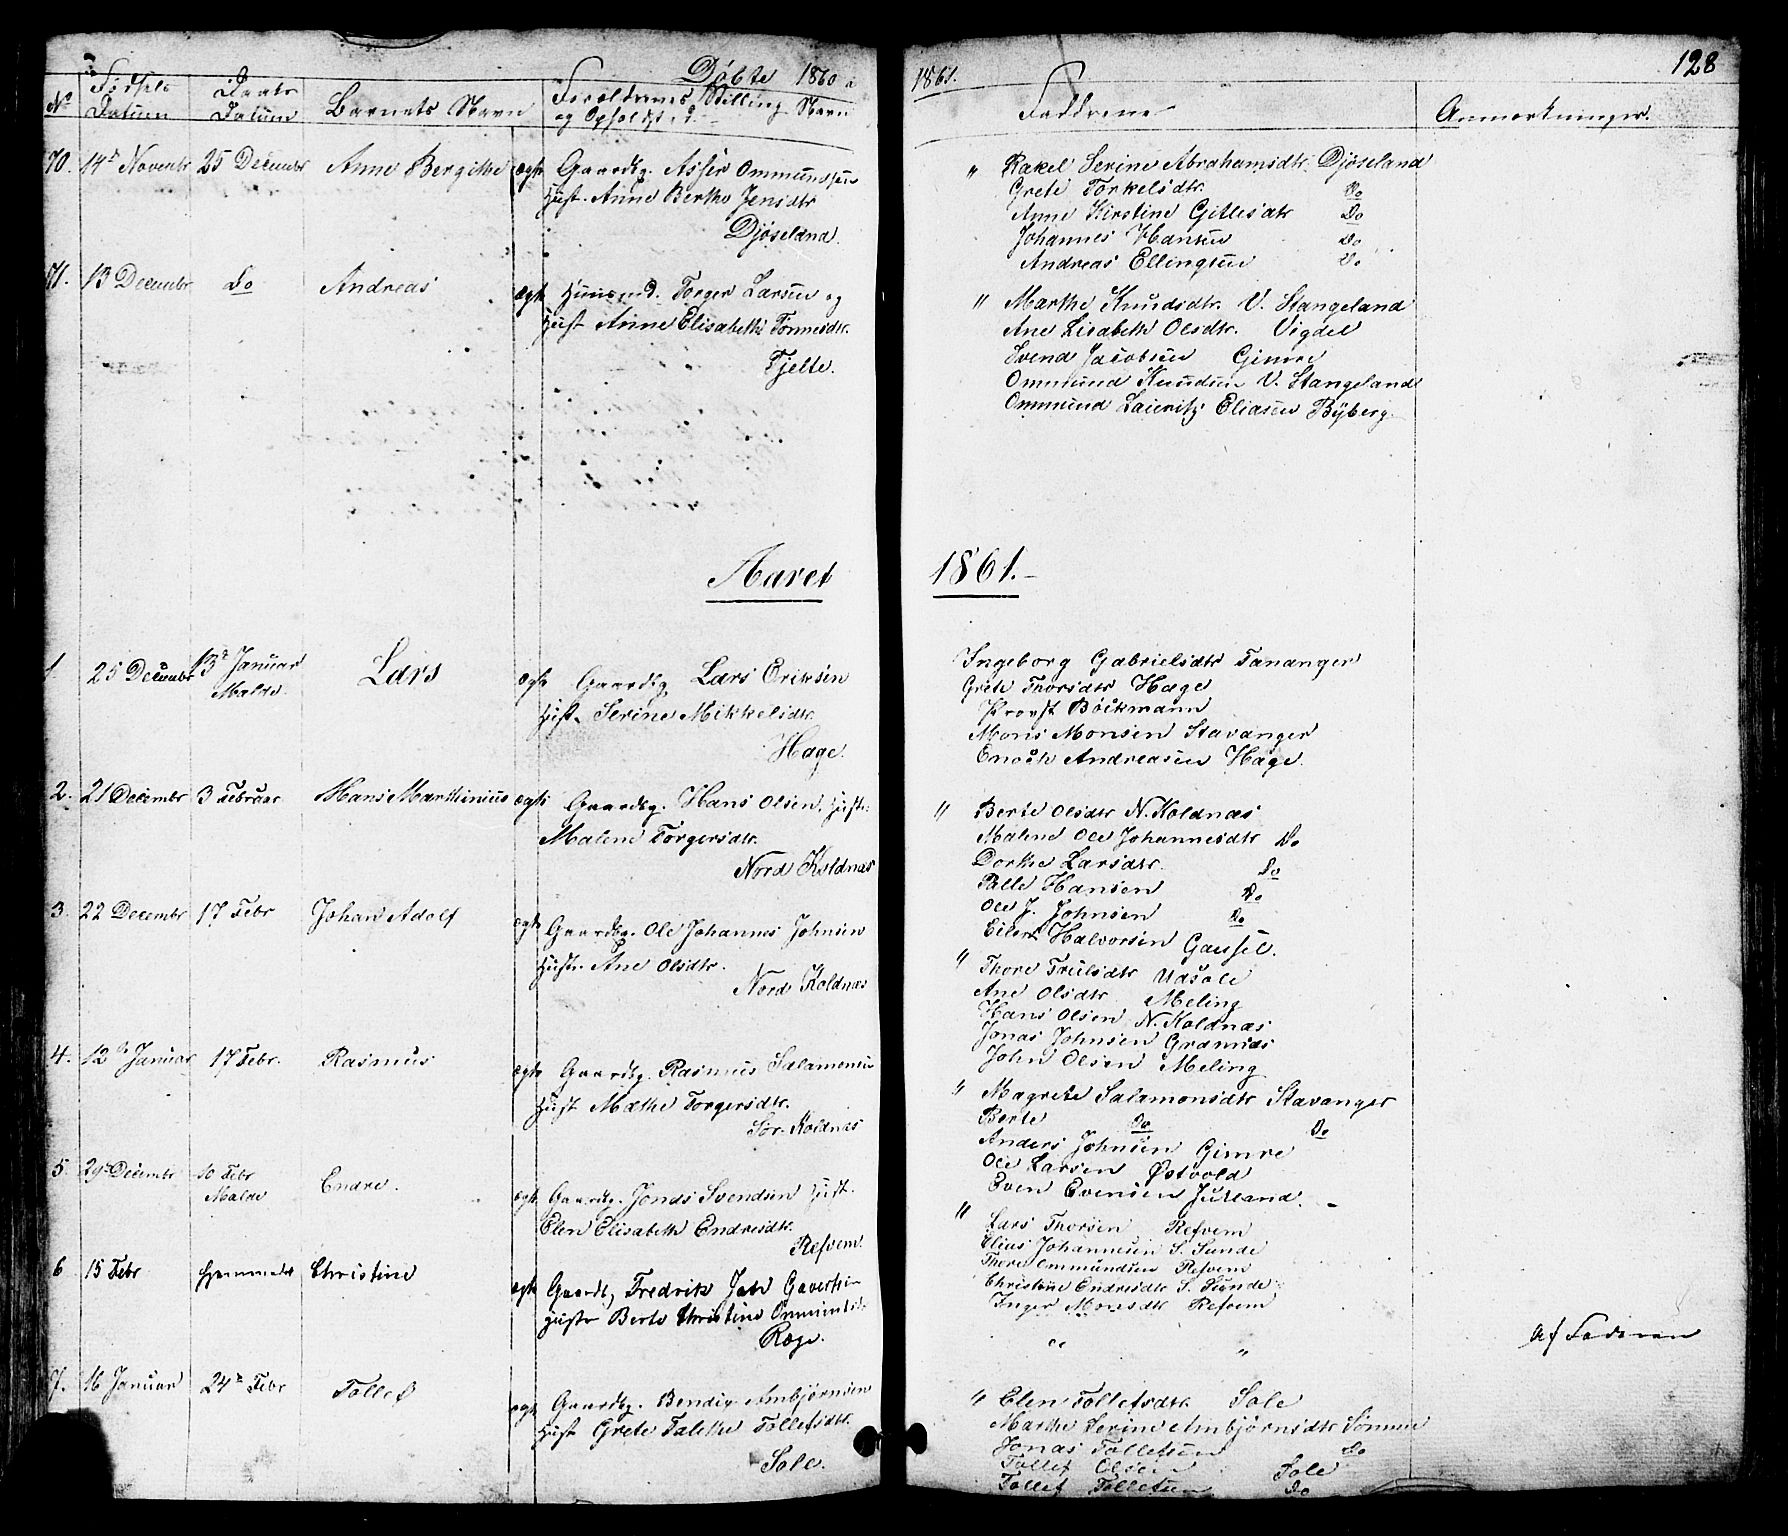 Döbte 1860 a 1861. 128
No Födsels Datum Daabs Datum Barnets Navn Forældrenes Stilling Navn og Opholdsted Faddrene Anmærkninger.
70. 14de Novembr 25 Decembr Anne Bergithe ægte Gaardbg. Asser Ommundsen
Hust. Anne Berthe Jensdtr
Djöseland.
" Rakel Serine Abrahamsdtr. Djöseland
Grete Torkelsdtr. Do
Anne Kirstine Gitlesdtr Do
Johannes Hansen Do
Andreas Ellingsen Do
71. 13 Decembr Do Andreas ægte Huusmd. Torger Larsen og
Hust Anne Elisabeth Tönnesdtr.
Tjelte.
" Marthe Knudsdtr. V. Stangeland
Ane Lisabeth Olsdtr. Vigdel
Svend Jacobsen Gimre
Ommund Knudsen V. Stangeland
Ommund Lauritz Eliasen Byberg
Aaret 1861.
1 25 Decembr 13de Januar Malde. Lars ægte Gaardbg Lars Eriksen
Hust. Serine Mikkelsdtr.
Hage.
Ingeborg Gabrielsdtr Tananger
Grete Thorsdtr Hage
Provst Böckmann
Mons Monsen Stavanger
Enoch Andreasen Hage.
2. 21 Decembr 3 Februar Hans Marthinius ægte Gaardbg. Hans Olsen, Hust.
Malene Torgersdtr.
Nord Koldnæs
" Berte Olsdtr N. Koldnæs
Malene Ole Johannesdtr Do
Dorthe Larsdtr. Do
Palle Hansen Do
Ole J. Johnsen Do
Eilert Halvorsen Gausel.
3. 22 Decembr 17 Febr Johan Adolf ægte Gaardbg. Ole Johannes Johnsen
Hustr. Ane Olsdtr.
Nord Koldnæs
" Thore Trulsdtr Udsole
Ane Olsdtr Meling
Hans Olsen N. Koldnæs
Jonas Johnsen Grannæs
John Olsen Meling
4. 12te Januar 17 Febr. Rasmus ægte Gaardbg. Rasmus Salamonsen
Hust Marthe Torgersdtr.
Sör. Koldnæs
" Magrete Salamonsdtr Stavanger
Berte Do Do
Anders Johnsen Gimre
Ole Larsen Østvold
Even Evensen Jutland.
5. 29 Decembr 10 Febr Malde Endre. ægte Gaardbg. Jonas Svendsen Hust.
Elen Elisabeth Endresdtr.
Refvem.
" Lars Thorsen Refvem
Elias Johannesen S. Sunde
Thore Ommundsen Refvem
Christene Endresdtr S. Sunde
Inger Monsdtr Refvem
6 15 Febr hjemmedt Christine ægte Gaardb, Fredrik Jah
Hustr Berte Christine
Ræge.
" " Af Faderen
7. 16 Januar 24de Febr Tollef ægte Gaardbg. Bendig Ambjörnsen
Hust Grete Talethe Tollefsdtr.
Sole.
" Elen Tollefsdtr. Sole
Marthe Serine Ambjörnsdtr Sömme
Jonas Tollefsen Do
Tollef Olsen Sole
Tollef Tollefsen Do